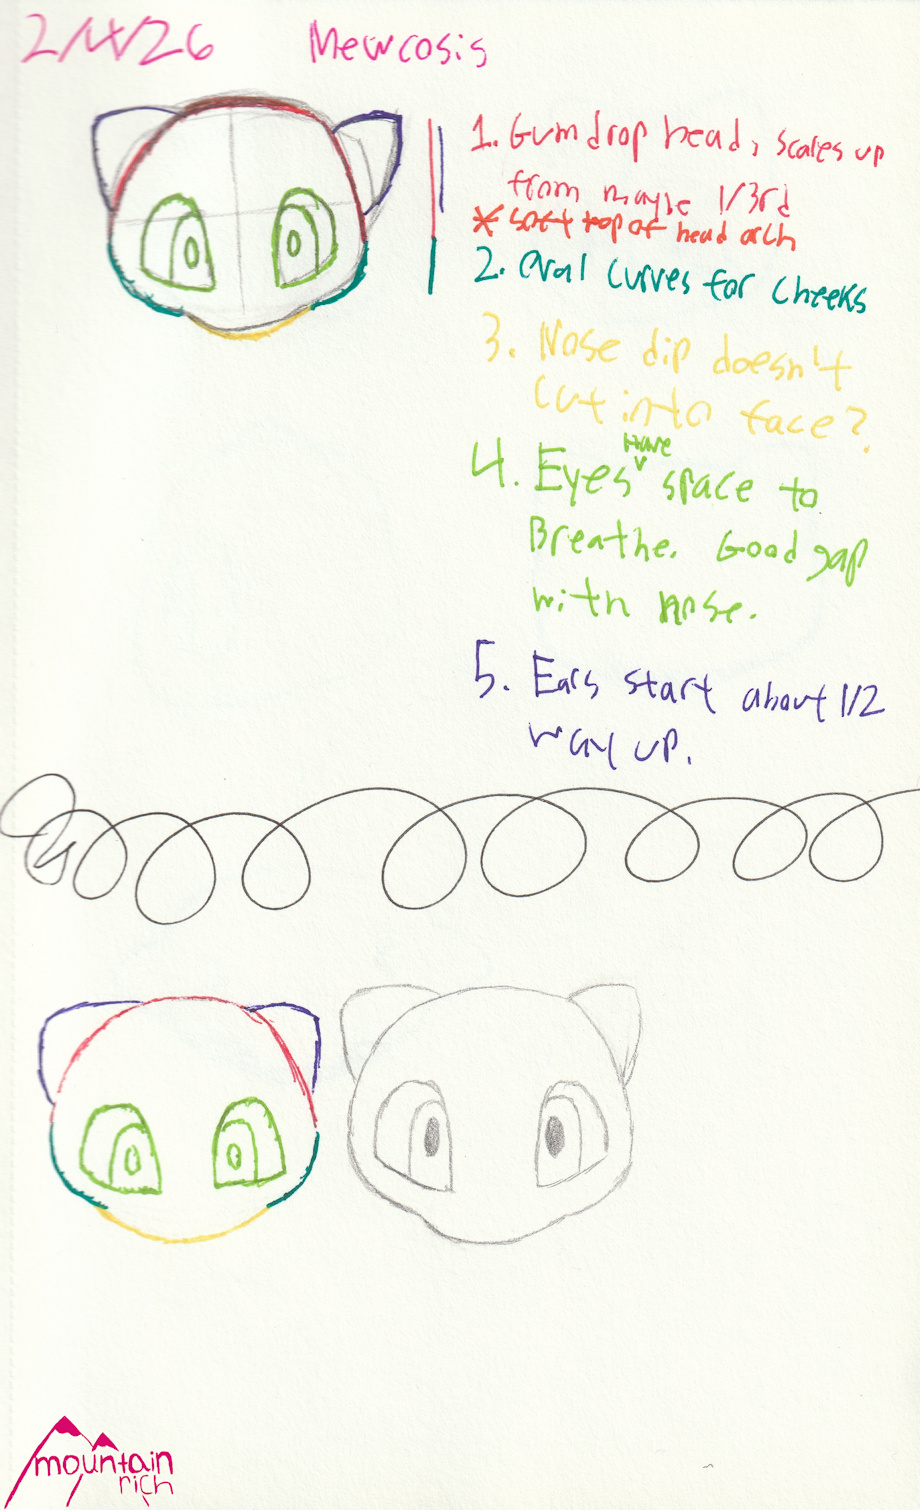 2/4/26 Mewcosis
1. Gumdrop head, scales up
from maybe 1/3rd
* soft top of head arch
2. Oval curves for cheeks
3. Nose dip doesn't
cut into face?
4. Eyes have space to
Breathe. Good gap
with nose.
5. Ears start about 1/2
way up.
mountain
rich